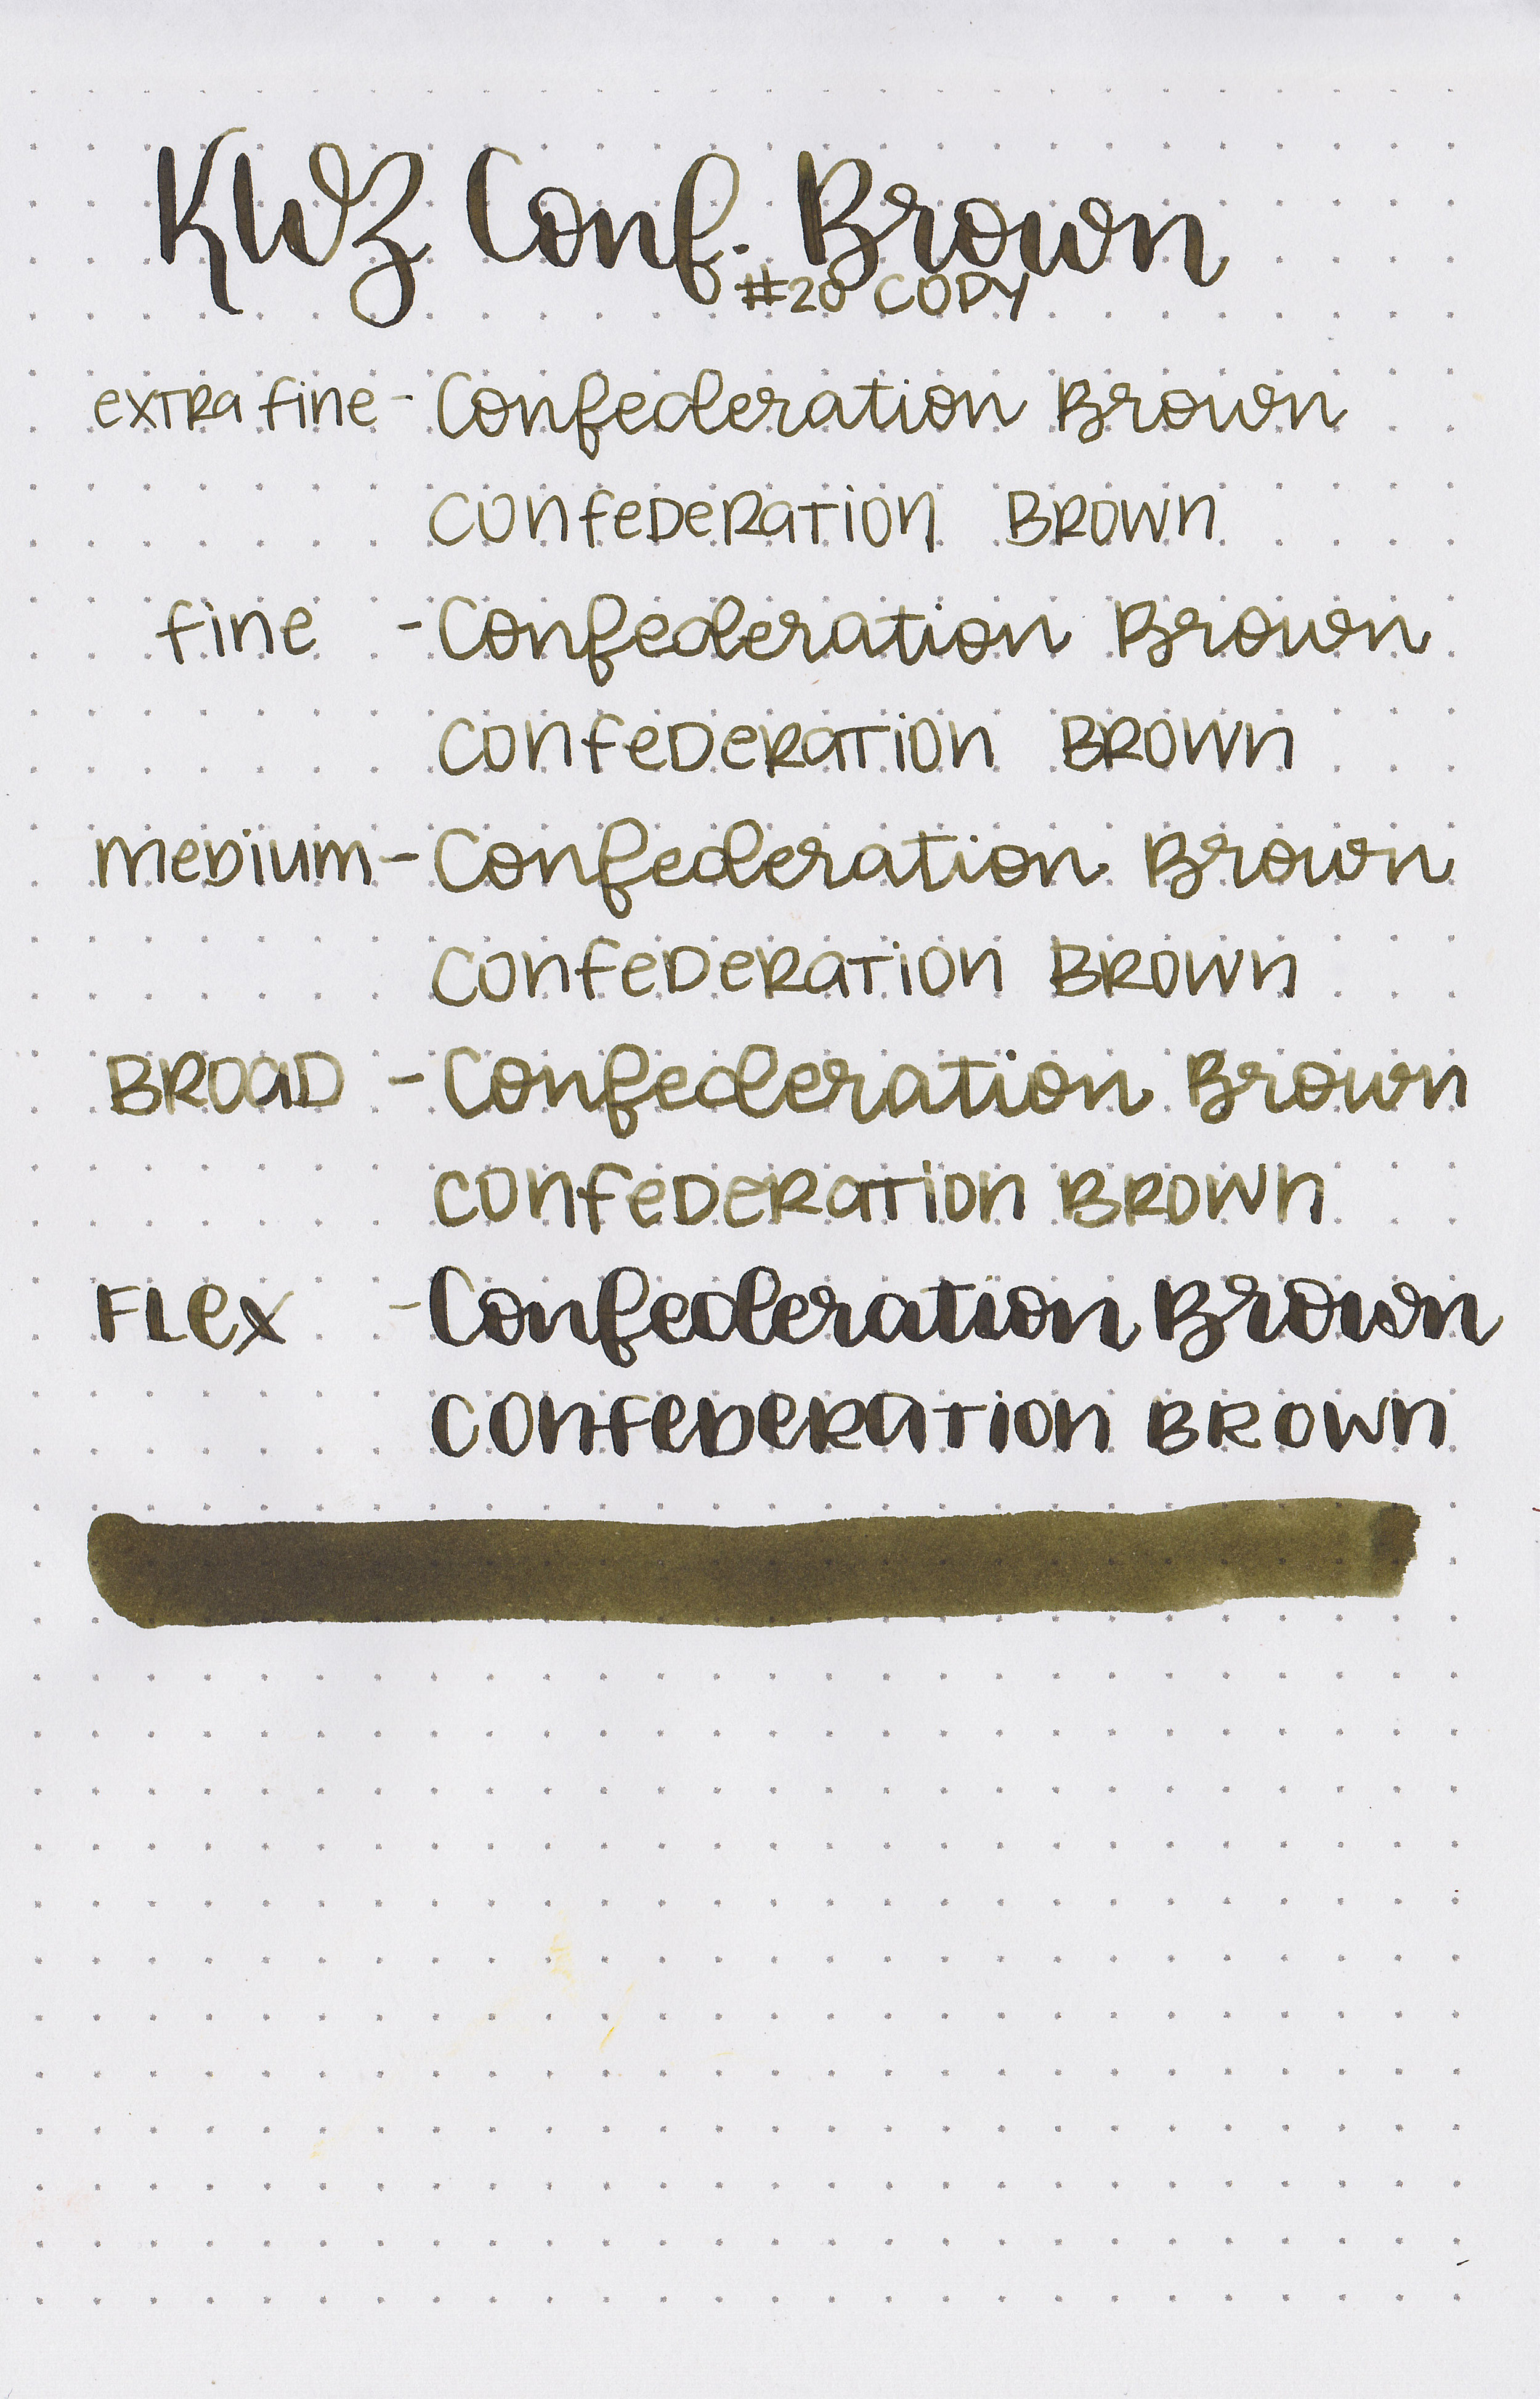 KWZ Conf. Brown
#20 COPY
extra fine - Confederation Brown
Confederation Brown
fine - Confederation Brown
Confederation Brown
medium - Confederation Brown
Confederation Brown
BROAD - Confederation Brown
Confederation Brown
FLex - Confederation Brown
Confederation Brown